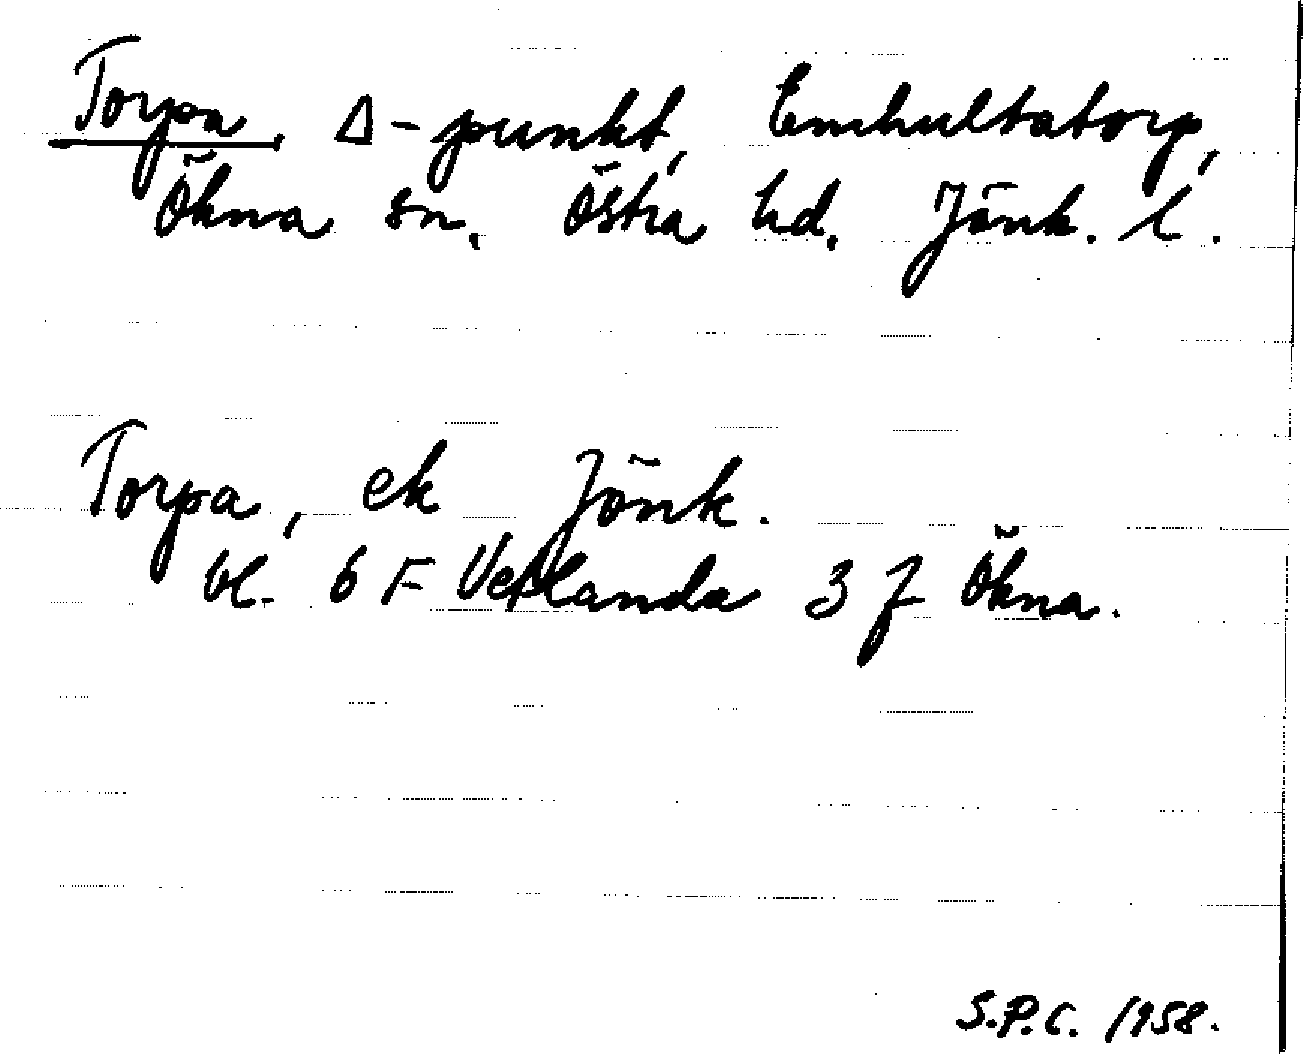 Torpa, Δ-punkt, Emhultatorp,
Ökna sn. Östra hd. Jönk. l.
Torpa, ek Jönk.
bl. 6 F Vetlanda 3 f Ökna.
S.P.C. 1958.